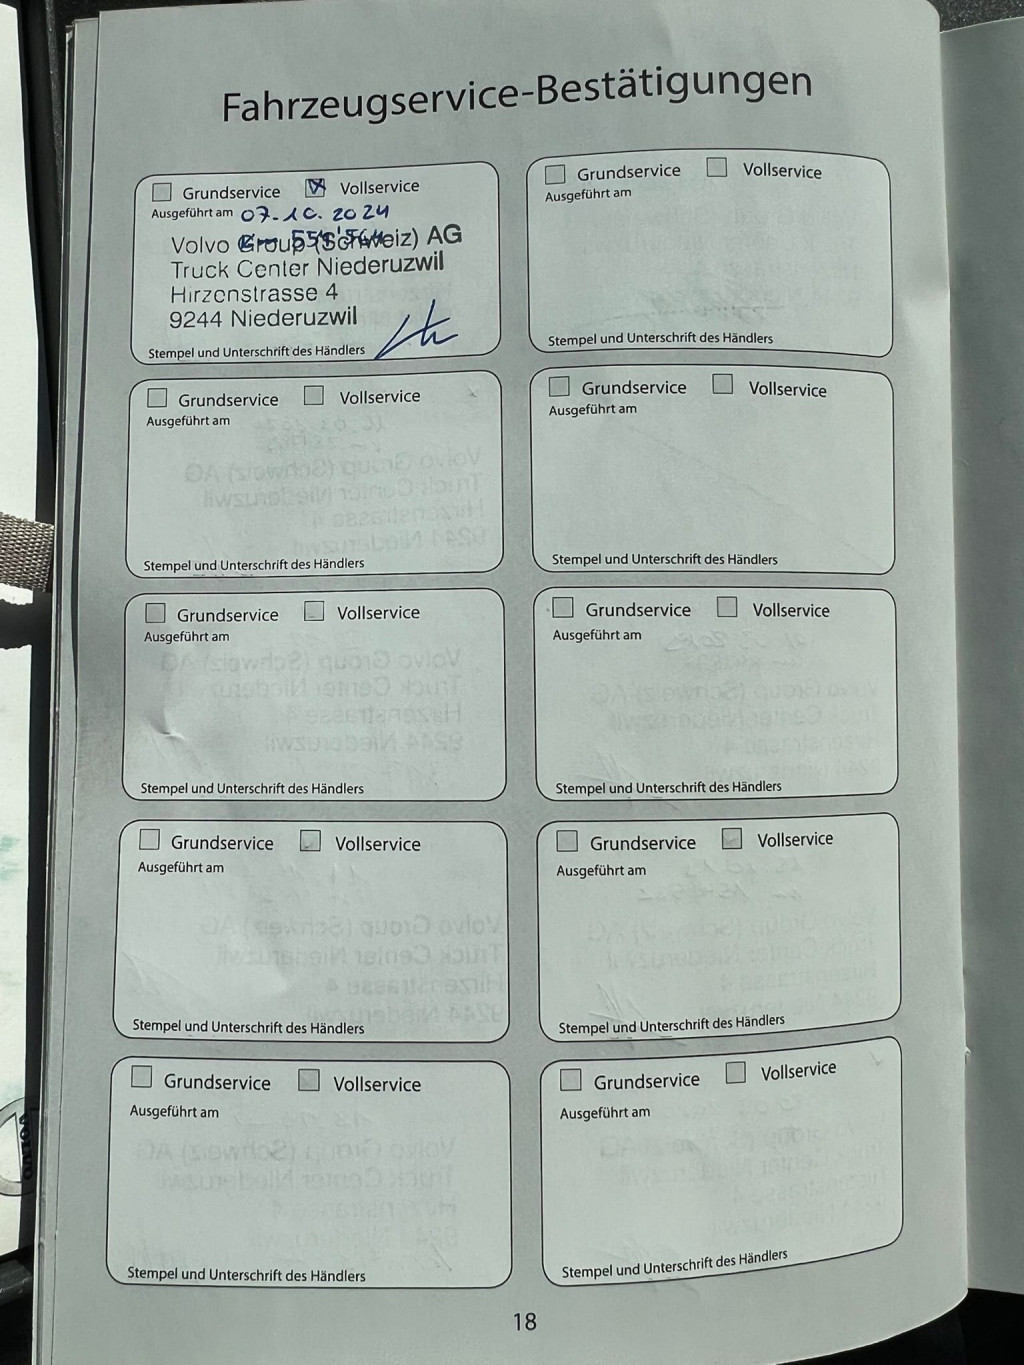 Fahrzeugservice-Bestätigungen
Grundservice Vollservice
Ausgeführt am 07.10.2024
Volvo Group (Schweiz) AG
Truck Center Niederuzwil
Hirzenstrasse 4
9244 Niederuzwil
Stempel und Unterschrift des Händlers
Grundservice Vollservice
Ausgeführt am
Stempel und Unterschrift des Händlers
Grundservice Vollservice
Ausgeführt am
Stempel und Unterschrift des Händlers
Grundservice Vollservice
Ausgeführt am
Stempel und Unterschrift des Händlers
Grundservice Vollservice
Ausgeführt am
Stempel und Unterschrift des Händlers
Grundservice Vollservice
Ausgeführt am
Stempel und Unterschrift des Händlers
Grundservice Vollservice
Ausgeführt am
Stempel und Unterschrift des Händlers
Grundservice Vollservice
Ausgeführt am
Stempel und Unterschrift des Händlers
Grundservice Vollservice
Ausgeführt am
Stempel und Unterschrift des Händlers
Grundservice Vollservice
Ausgeführt am
Stempel und Unterschrift des Händlers
18
VOLVO